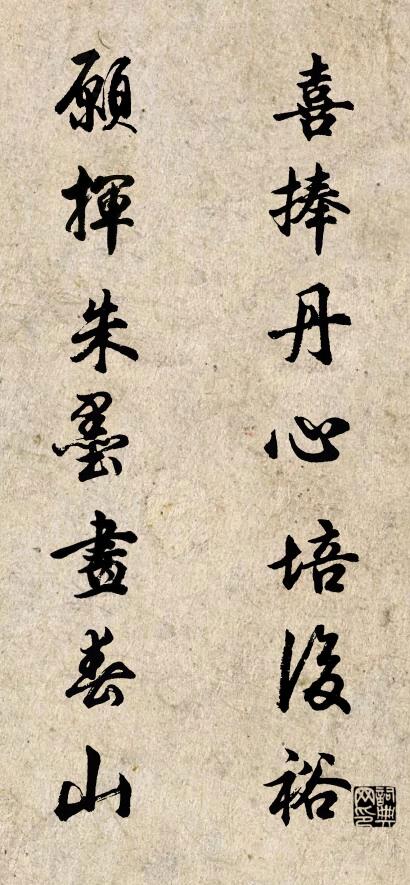 喜捧丹心培後裕
願揮朱墨畫春山
詞典网印